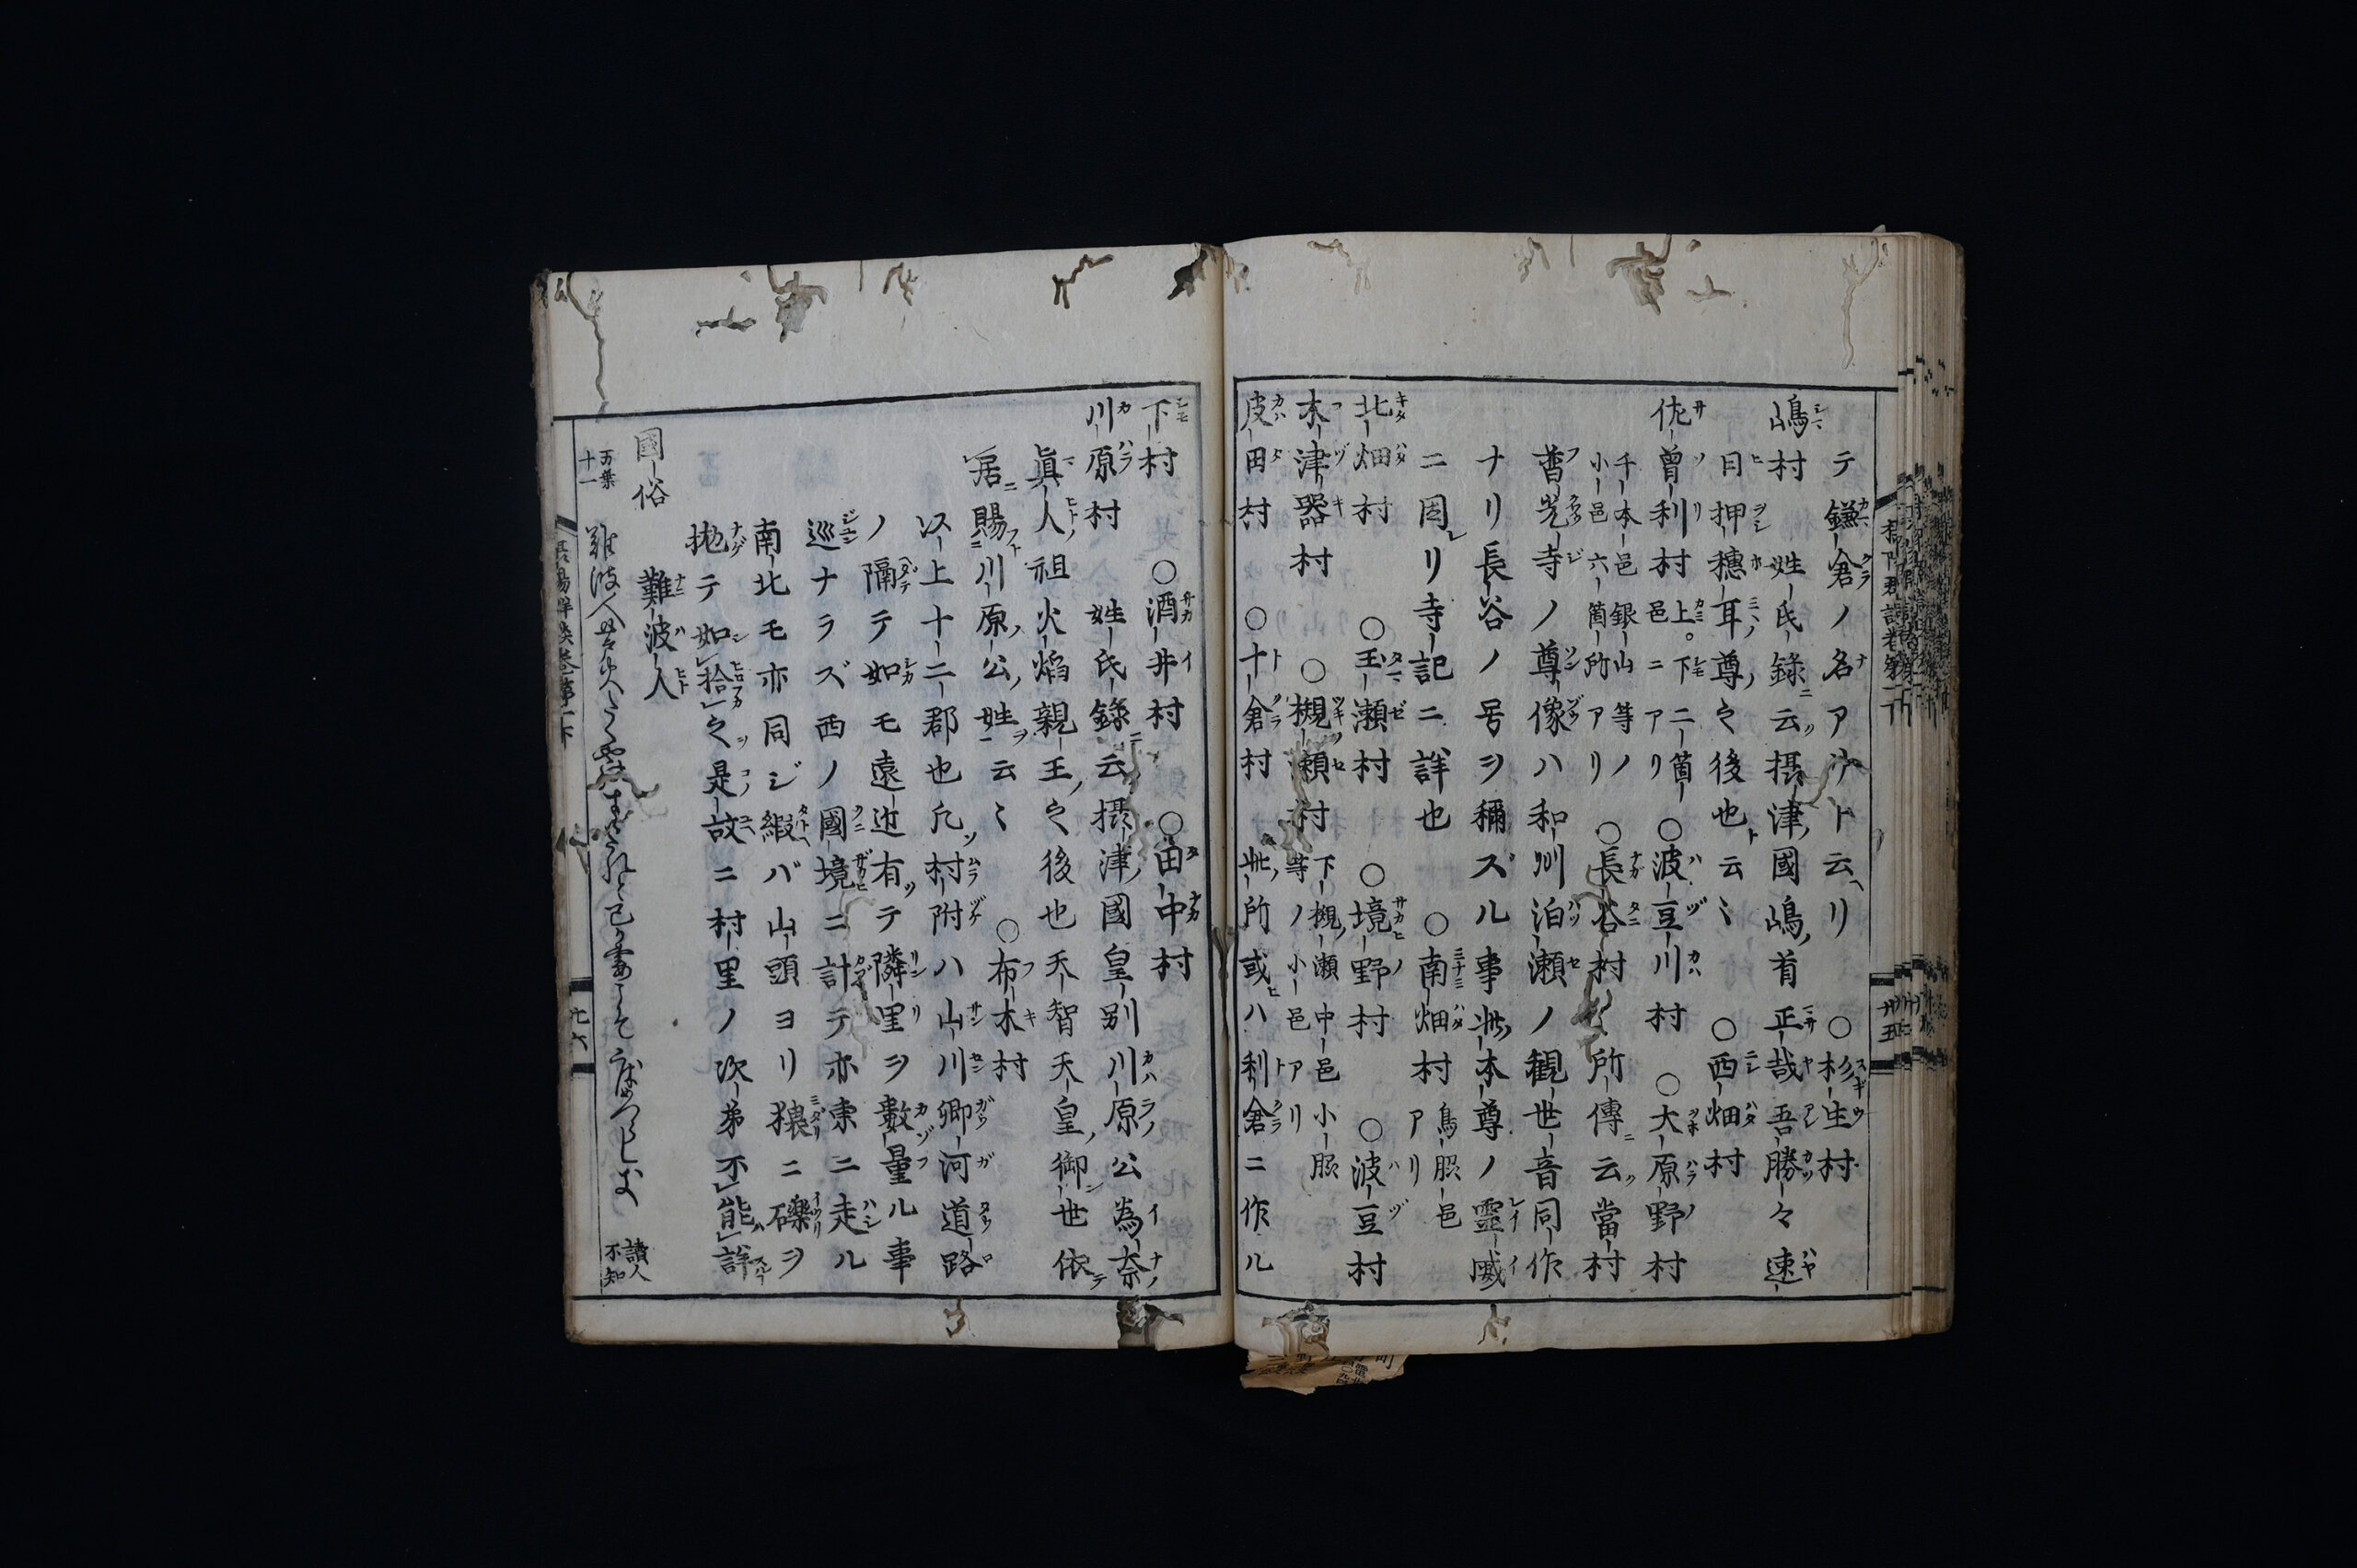 テ鎌倉ノ名アリト云リ　○杉生村
嶋村　姓氏錄ニ云摂津國嶋首正哉吾勝々速
日押穗耳尊之後也ト云〻　○西畑村
佐曽利村　上。下二箇邑ニアリ　○波豆川村　○大原野村
千本邑銀山等ノ小邑六箇所アリ　○長谷村　所傳ニ云當村
普光寺ノ尊像ハ和州泊瀬ノ観世音同作
ナリ長谷ノ号ヲ稱ズル事此本尊ノ靈威
ニ因リ寺記ニ詳也　○南畑村　鳥脵邑アリ
北畑村　○玉瀬村　○境野村　○波豆村
木津器村　○槻瀬村　下槻瀬中邑小脵等ノ小邑アリ
皮田村　○十倉村　此所或ハ利倉ニ作ル
下村　○酒井村　○田中村
川原村　姓氏錄ニ云摂津國皇別川原公為奈
眞人祖火焔親王之後也天智天皇御世依
居賜川原公姓云〻　○布木村
以上十二郡也凡村附ハ山川郷河道路
ノ隔テ如モ遠近有テ隣里ヲ數量ル事
巡ナラズ西ノ國境ニ計テ亦東ニ走ル
南北モ亦同ジ緞バ山頭ヨリ猥ニ礫ヲ
抛テ如拾之是故ニ村里ノ次弟不能詳
國俗
難波人
万葉十一
難波人
讀人不知
廿五
廿六